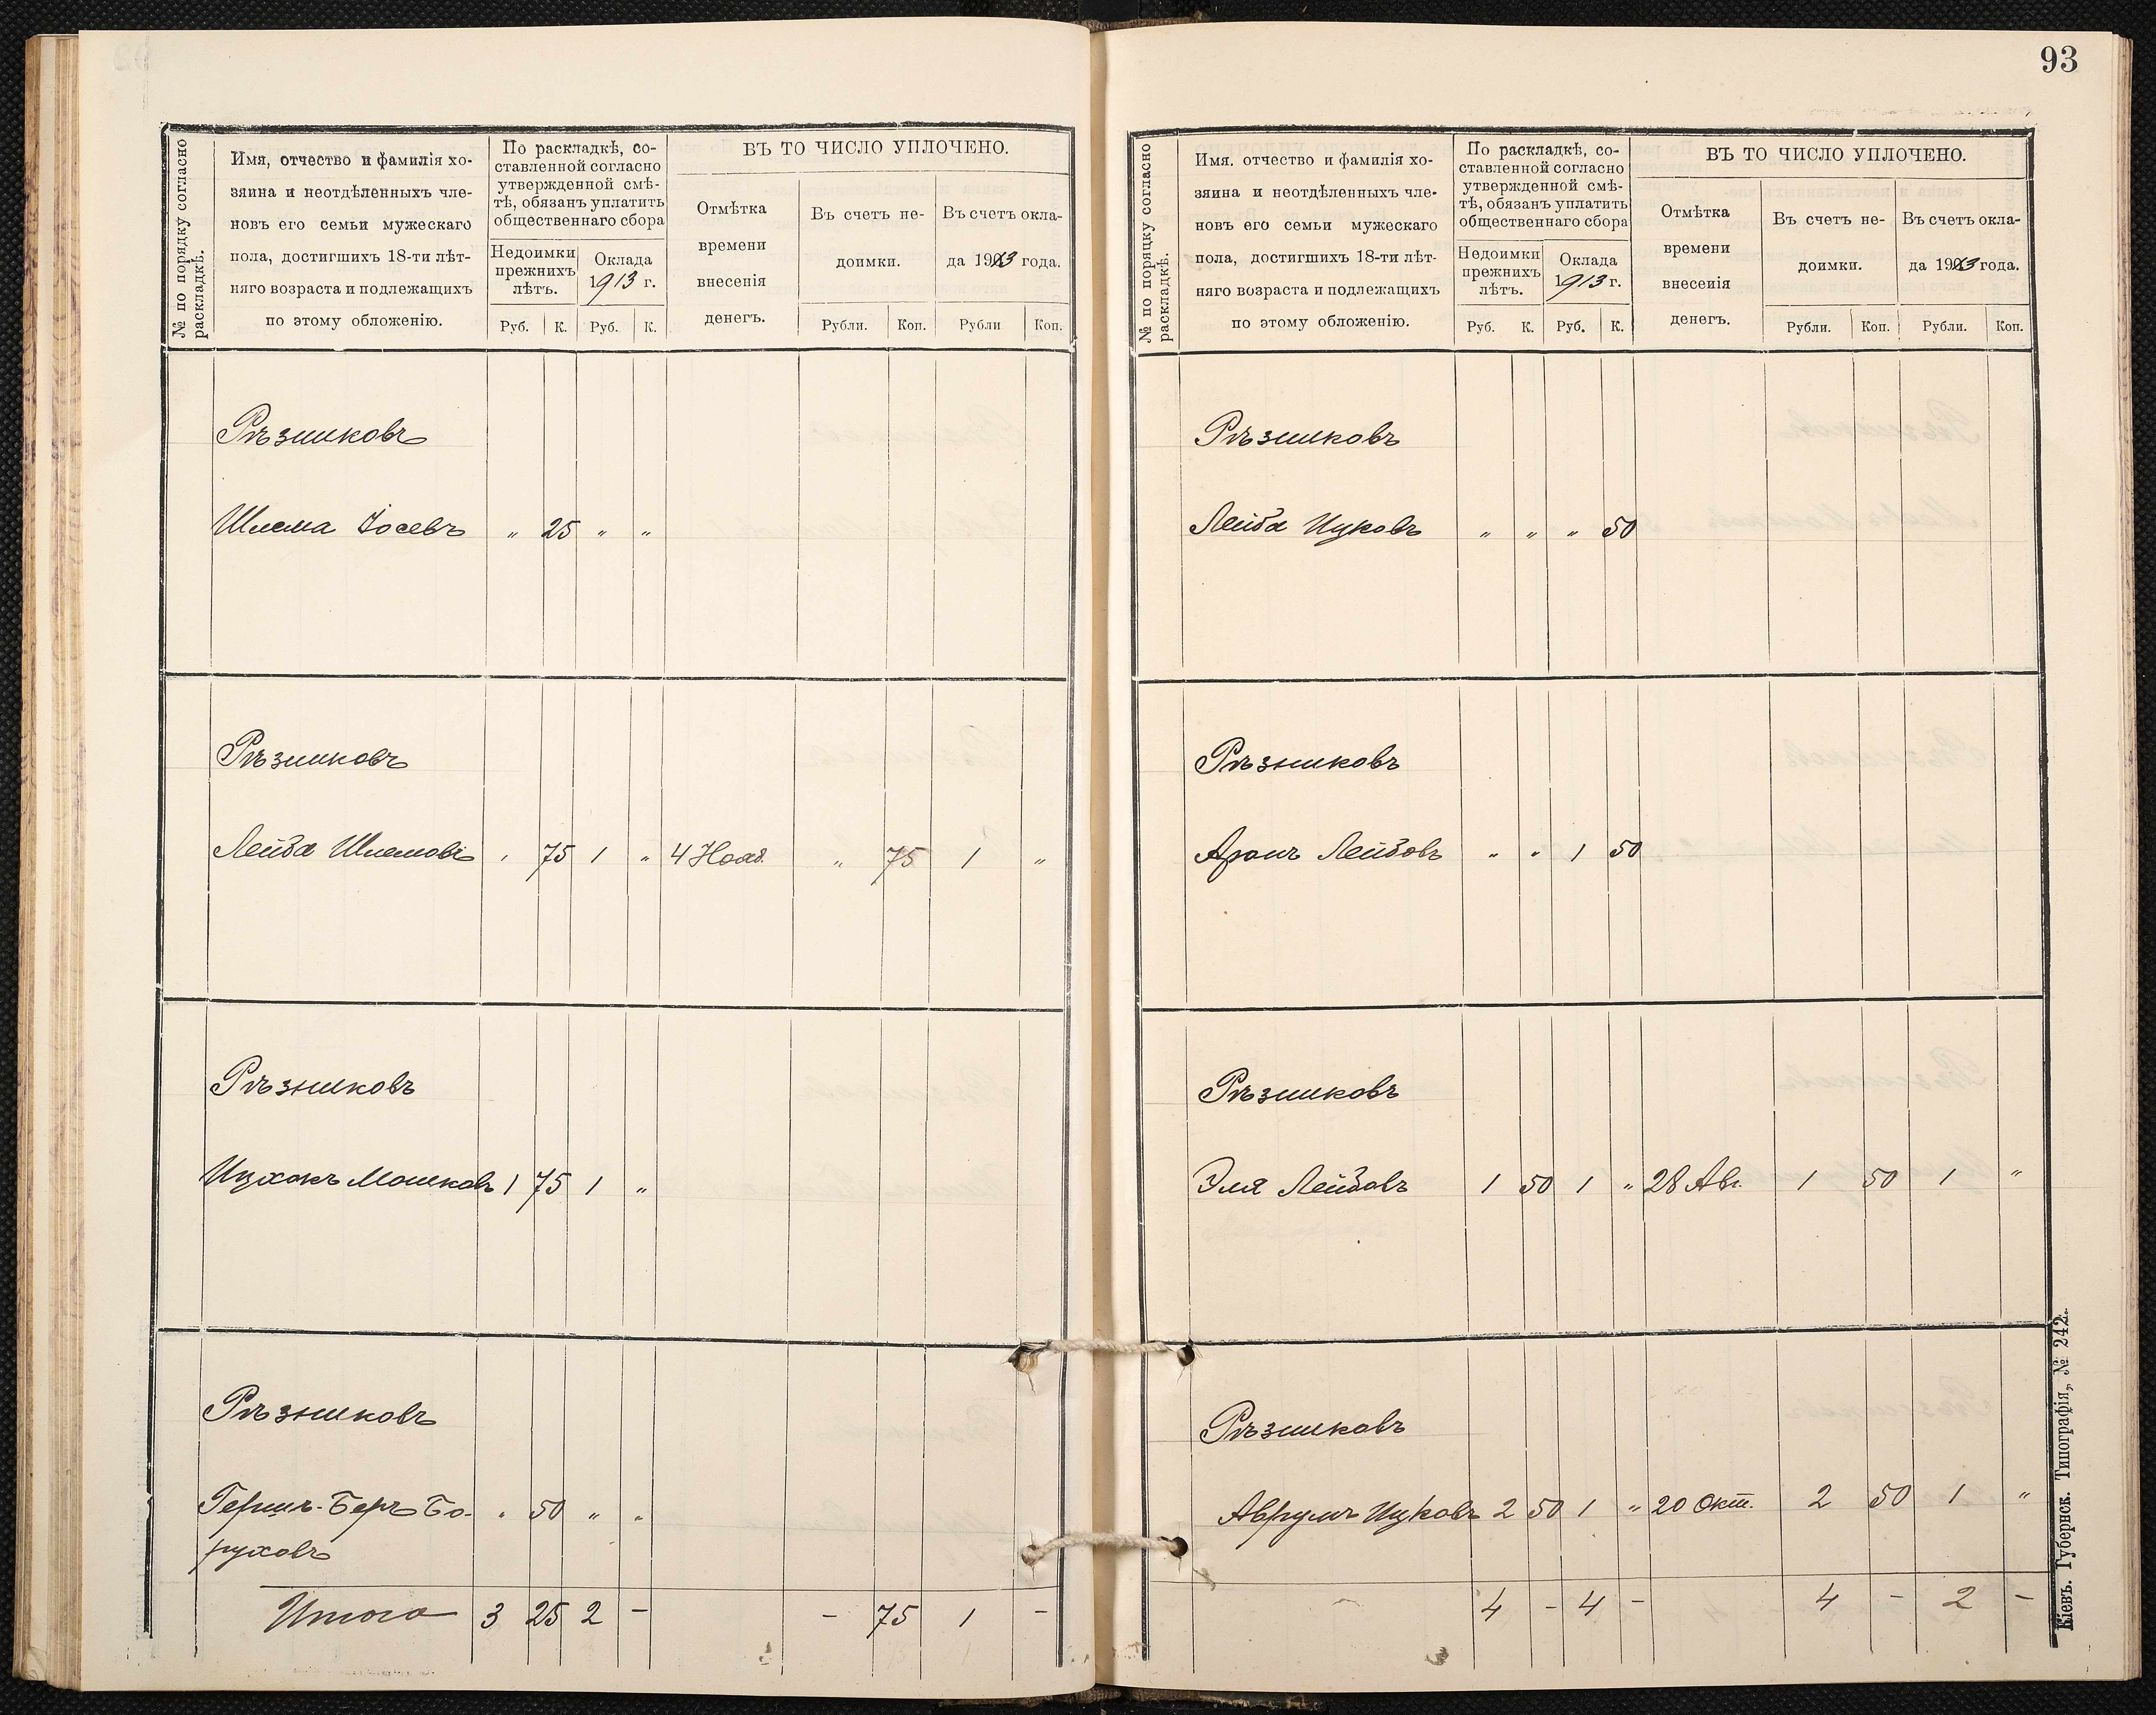 № по порядку согласно
раскладкѣ.
Имя, отчество и фамилія хо-
зяина и неотдѣленныхъ чле-
новъ его семьи мужескаго
пола, достигшихъ 18-ти лѣт-
няго возраста и подлежащихъ
по этому обложенію.
По раскладкѣ, со-
ставленной согласно
утвержденной смѣ-
тѣ, обязанъ уплатить
общественнаго сбора
Недоимки
прежнихъ
лѣтъ.
Оклада
1913 г.
Руб. К. Руб. К.
ВЪ ТО ЧИСЛО УПЛОЧЕНО.
Отмѣтка
времени
внесенія
денегъ.
Въ счетъ не-
доимки.
Въ счетъ окла-
да 1913 года.
Рубли. Коп. Рубли Коп.
Рѣзниковъ
Шлема Іосевъ " 25 " "
Рѣзниковъ
Лейба Шлемовъ " 75 1 " 4 Нояб. " 75 1 "
Рѣзниковъ
Ицхокъ Мошковъ 1 75 1 "
Рѣзниковъ
Гершъ-Беръ Бо- " 50 " "
руховъ
Итого 3 25 2 - - 75 1 -
93
№ по порядку согласно
раскладкѣ.
Имя. отчество и фамилія хо-
зяина и неотдѣленныхъ чле-
новъ его семьи мужескаго
пола, достигшихъ 18-ти лѣт-
няго возраста и подлежащихъ
по этому обложенію.
По раскладкѣ, со-
ставленной согласно
утвержденной смѣ-
тѣ, обязанъ уплатить
общественнаго сбора
Недоимки
прежнихъ
лѣтъ.
Оклада
1913 г.
Руб. К. Руб. К.
ВЪ ТО ЧИСЛО УПЛОЧЕНО.
Отмѣтка
времени
внесенія
денегъ.
Въ счетъ не-
доимки.
Въ счетъ окла-
да 1913 года.
Рубли. Коп. Рубли. Коп.
Рѣзниковъ
Лейба Ицковъ " " " 50
Рѣзниковъ
Аронъ Лейбовъ " " 1 50
Рѣзниковъ
Эля Лейбовъ 1 50 1 " 28 Авг. 1 50 1 "
Рѣзниковъ
Аврумъ Ицковъ 2 50 1 " 20 Окт. 2 50 1 "
4 - 4 - 4 - 2 -
Кіевъ. Губернск. Типографія, № 242.